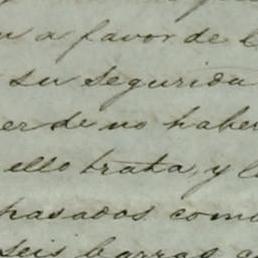 a favor de l
su segurida
er de no haber
ello trata, y l
pasados com
seis barras